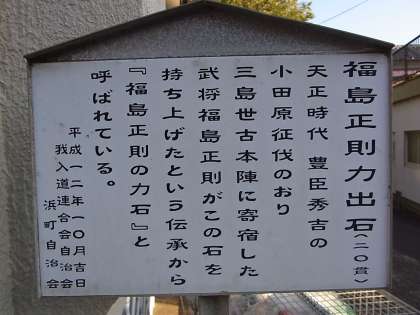 福島正則力出石(二〇貫)
天正時代 豊臣秀吉の
小田原征伐のおり
三島世古本陣に寄宿した
武将福島正則がこの石を
持ち上げたという伝承から
『福島正則の力石』と
呼ばれている。
平成一二年一〇月吉日
我入道連合会自治会
浜町自治会